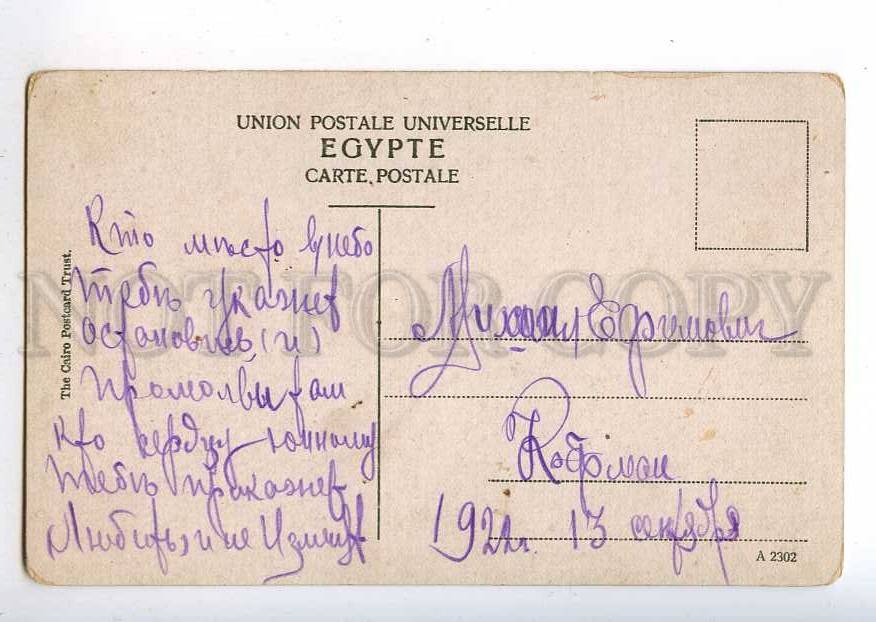 UNION POSTALE UNIVERSELLE
EGYPTE
CARTE POSTALE
The Cairo Postcard Trust.
Кто мѣсто в небо
тебѣ укажет
остановись (и)
промолвы там
кто сердцу юнному
тебѣ прикажет
Любить, и не
Михаил Ефимович
Кофман
1922г. 13 сентября
A 2302
NOT FOR COPY